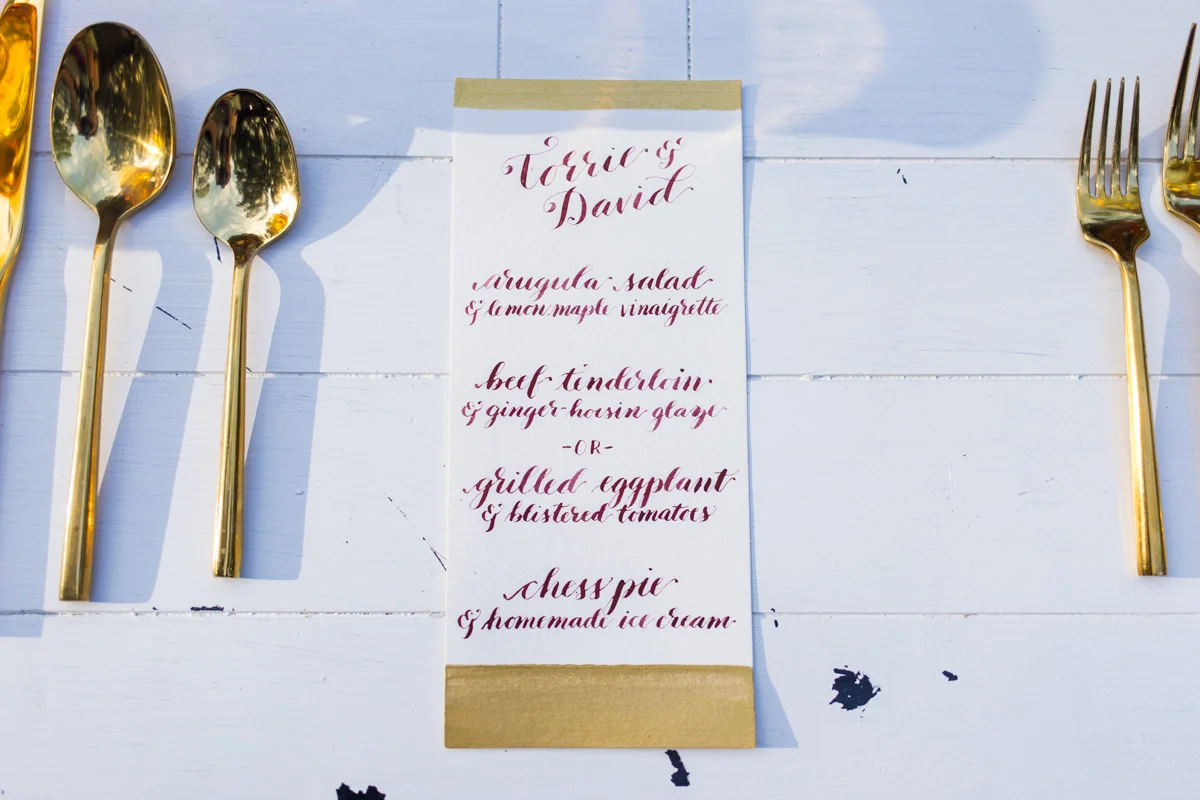 Torrie &
David
arugula salad
& lemon maple vinaigrette
beef tenderloin
& ginger-hoisin glaze
-OR-
grilled eggplant
& blistered tomatoes
chess pie
& homemade ice cream